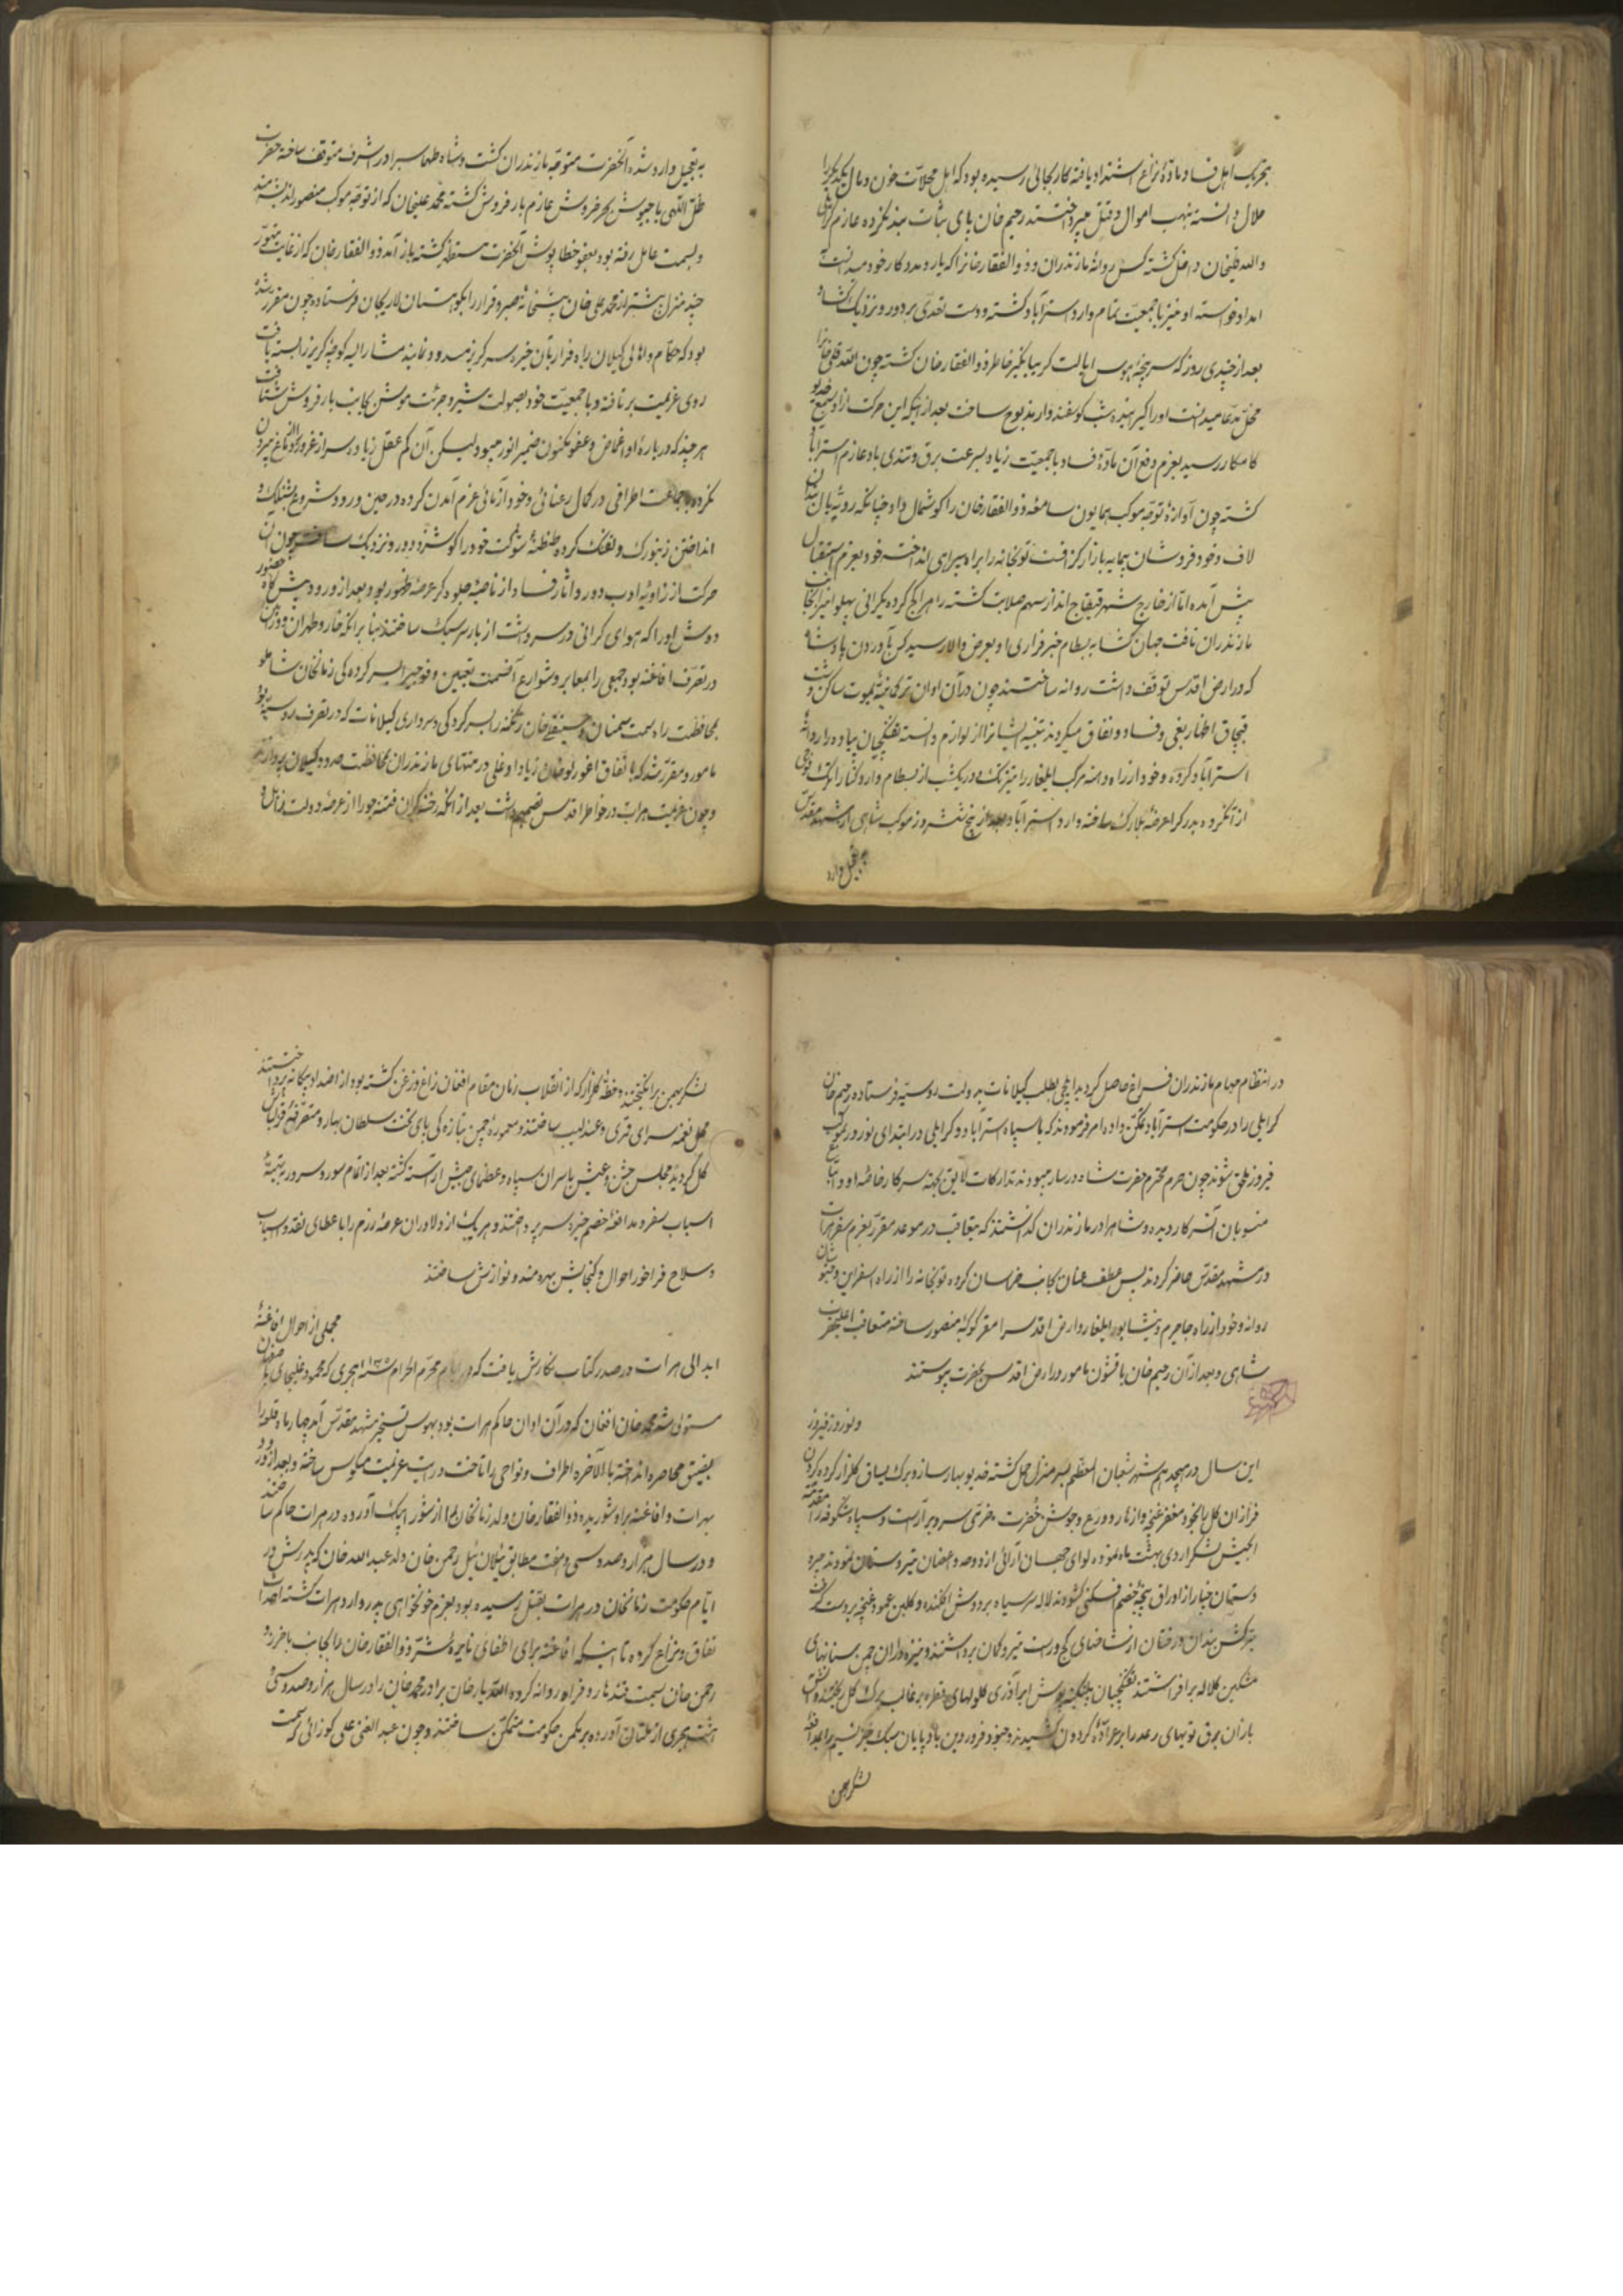 بتحریک اهل فساد ماده نزاع اشتداد یافته کار بجائی رسیده بود که اهل محلات خون و مال یکدیگر را
حلال دانسته بنهب اموال و قتل میپرداختند رحیم خان پای ثبات بند نکرده عازم
والله قلیخان داخل کشته کس روانه مازندران و ذوالفقار خانرا که یار و مددکار خود میدانست
امداد خواسته او نیز با جمعیت تمام وارد استراباد کشته و دست تعدی بر دور و نزدیک کشاد
بعد از چندی روز که سرپنجه هوس ایالت کریبانکیر خاطر ذوالفقار خان کشته چون الله قلی خانرا
مخل مدعا میدانست اورا شب کوسفندوار مذبوح ساخت بعد از آنکه این حرکت از او بسمع خدیو
کامکار رسید بعزم دفع آن ماده فساد با جمعیت زیاد بسرعت برق و تندی باد عازم استراباد
کشته چون آوازه توجه موکب همایون سامعه ذوالفقار خان را کوشمال داد چنانکه رویه
لاف و خود فروشان بیمایه بازار کزافست توپخانه را براه سیرابی انداخته خود بعزم استقبال
پیش آمده اما از خارج شهر قیقاج انداز سهم صلابت کشته راه را کج کرده یکرانی پهلو
مازندران تافت جهان کشا به بسطام خبر فراری او بعرض والا رسید کس بآوردن پادشاه
که در ارض اقدس توقف داشت روانه ساختند چون در آن اوان ترکمانیه یموت ساکن دشت
قبچاق اظهار بغی و فساد و نفاق میکردند تنبیه ایشانرا از لوازم دانسته تفنکچیان پیاده را روانه
استراباد کرده و خود از راه دهنه کرک ایلغار را تیزتک و در یکشب از بسطام وارد کنار کرک و فوجی
از انکروه بدرک را عرضه تدارک ساخته وارد استراباد و بعد از پنج شش روز موکب شاهی از مشهد مقدس
بتعجیل وارد
بتعجیل وارد شده آنحضرت متوجه مازندران کشت و شاه طهماسب را در اشرف متوقف ساخته حضرت
ظل اللهی با جیوش بحر خروش عازم بارفروش کشته محمد علیخان که از توجه موکب منصور اندیشمند
و بسمت عامل رفته بود بعفو خطا پوش آنحضرت مستظهر کشته باز آمد و ذوالفقار خان که از غایت تهور
چند منزل پیشتر از محمد علی خان پیشخانه صبر و قرار را بکوهستان لاریجان فرستاده چون مقرر شده
بود که حکام و اهالی کیلان راه فرار بآن خیره سر کریز مسدود نمایند مشارالیه کوچه کریز را بسته یافت
روی عزیمت برتافته و با جمعیت خود بصولت شیر و جرئت موش بجانب بارفروش شتافت
هر چند که درباره او اغماض و عفو مکنون ضمیر انور میبود لیکن آن کم عقل زیاده سر از غرور بیرون
نکرده با جماعت اطرافی در کمال رعنائی و خودآرائی عزم آمدن کرده در حین ورود شروع بشلیک و
انداختن زنبورک و تفنک کرده طنطنه شوکت خود را کوشزد دور و نزدیک ساخت چون آن
حرکت از زاویه ادب دور و آثار فساد از ناصیه جلوه کر عرصه ظهور بود بعد از ورود پیش کاه حضور
دوش اورا که هوای کرانی در سر داشت از بار سر سبک ساختند بنا بر آنکه خار و طهران و
در تصرف افاغنه بود جمعی را بمعابر و شوارع آنسمت تعیین و فوجی بسرکرده کی زمانخان شاملو
بمحافظت راه سمت سمنان و حسینقلی خان زنکنه را بسرکرده کی و سرداری کیلانات که در تصرف روسیه بود
مامور و مقرر شد که باتفاق اغورلو خان زیاد اوغلی در منتهای مازندران بمحافظت حدود کیلان پردازند
و چون عزیمت هرات در خاطر اقدس تصمیم داشت بعد از آنکه رخنه کران فتنه جو را از عرصه دولت زایل و
در انتظام مهام مازندران فراغ حاصل کردید ایلچی بطلب کیلانات بدولت روسیه فرستاده رحیم خان
کرایلی را در حکومت استراباد تمکن داده امر فرمودند که با سپاه استراباد و کرایلی در ابتدای نوروز بموکب
فیروز ملحق شوند چون حرم محترم حضرت شاه در ساری میبودند تدارکات لایق بجهة سرکار خاصه او و
منسوبان آنسرکار دیده و شاه را در مازندران کذاشتند که متعاقب در موعد مقرر بعزم سفر هرات
در مشهد مقدس حاضر کردند پس عطف عنان بجانب خراسان کرده توپخانه را از راه اسفراین و خبوشان
روانه و خود از راه جاجرم و نیشابور ایلغار و ارض اقدس را مقر کوکبه منصور ساخته متعاقب اعلیحضرت
شاهی و بعد از آن رحیم خان با قشون مامور در ارض اقدس بحضرت پیوستند
و نوروز فیروز
این سال در هیجدهم شهر شعبان المعظم بسر منزل حمل کشته خدیو بهار ساز و برک یساق کلزار کرده کردن
فرازان کل با خود مغفر غنچه و ازهار و درع و جوشن خضرت و خرمی سر و بر آراست و سپاه شکوفه را مقدمة
الجیش لشکر اردی بهشت ماه نموده لوای جهان آرائی از دوحه و اغصان تیر و سنان نمودند چیره
دستان چنار از اوراق پنجه خصم افکنی کشودند لاله سر سیاه بر دوش افکنده و کلبن عمود غنچه بر دست کرفت
ترکش بندان درختان از شاخهای کج و راست تیر و کمان برداشتند و نیزه داران چمن سنانهای
مشکین کلاله برافراشتند تفنکچیان پلنکینه پوش ابر آذری کلولهای قطره بر قالب برک کل ریختند و
باران برق توپهای رعد را بر عراده کردون کشیدند و جنود فروردین بادپایان سبک خیز نسیم را بمدافعه
لشکر بهمن
لشکر بهمن برانکیختند و خطه کلزار که از انقلاب زمان مقام افغان زاغ و زغن کشته بود از اضداد بیکانه پرداختند
محل نغمه سرای قمری و عندلیب ساختند و معموره چمن بتازه کی پای تخت سلطان بهار و متصرفی قزلباش
کل کردید مجلس جشن و عیش با سران سپاه و عظمای جیش آراسته کشته بعد از اتمام سور و سرور بتهیه
اسباب سفر و مدافعه خصم خیره سر پرداختند و هر یک از دلاوران عرصه رزم را باعطای نقد و اسباب
و سلاح فراخور احوال و کنجایش بهره مند و نوازش ساختند
مجملی از احوال افاغنه
ابدالی هرات در صدر کتاب نکارش یافت که در ایام محرم الحرام سنه ۱۱۳۵ هجری که محمود غلیجائی باصفهان
مستولی شد محمد خان افغان که در آن اوان حاکم هرات بود بهوس تسخیر مشهد مقدس آمد چهار ماه قلعه را
بضیق محاصره انداخته بالآخره اطراف و نواحی را تاخت و رایت عزیمت معکوس ساخته و بعد از ورود
بهرات و افاغنه بر او شوریده ذوالفقار خان ولد زمانخان را از شورابک آورده در هرات حاکم ساختند
و در سال هزار و صد و سی و هفت مطابق ئیلان ئیل رحمن خان ولد عبدالله خان که پدرش در
ایام حکومت زمانخان در هرات بقتل رسیده بود بعزم خونخواهی پدر وارد هرات کشته احداث
نفاق و نزاع کرده تا اینکه افاغنه برای اطفای نایره شر ذوالفقار خان را بجانب باخرز و
رحمن خان بسمت قندهار و فراه روانه کرده الله یار خان برادر محمد خان را در سال هزار و صد و سی و
هشت هجری از ملتان آورده بر تمکن حکومت متمکن ساختند و چون عبدالغنی علی کوزائی که سمت